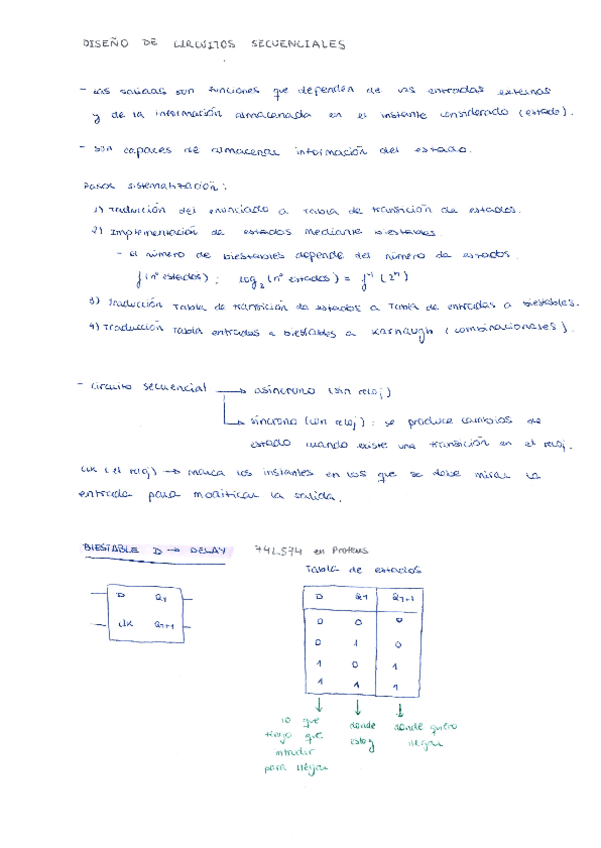 DISEÑO DE CIRCUITOS SECUENCIALES
- Las salidas son funciones que dependen de las entradas externas
y de la información almacenada en el instante considerado (estado).
- son capaces de almacenar información del estado.
Pasos sistematización:
1) Traducción del enunciado a Tabla de transición de estados.
2) Implementación de estados mediante biestables.
- el número de biestables depende del número de estados.
f(nº estados): log₂(nº estados) = f⁻¹(2ⁿ)
3) Traducción Tabla de transición de estados a Tabla de entradas a biestables.
4) Traducción Tabla entradas a biestables a Karnaugh (combinacionales).
- circuito secuencial → asíncrono (sin reloj)
→ síncrono (con reloj): se produce cambios de
estado cuando existe una transición en el reloj.
CLK (el reloj) → marca los instantes en los que se debe mirar la
entrada para modificar la salida.
BIESTABLE D → DELAY 74LS74 en Proteus
Tabla de estados
D QT
CLK QT+1
D QT QT+1
0 0 0
0 1 0
1 0 1
1 1 1
lo que donde donde quiero
tengo que estoy llegar
introducir
para llegar